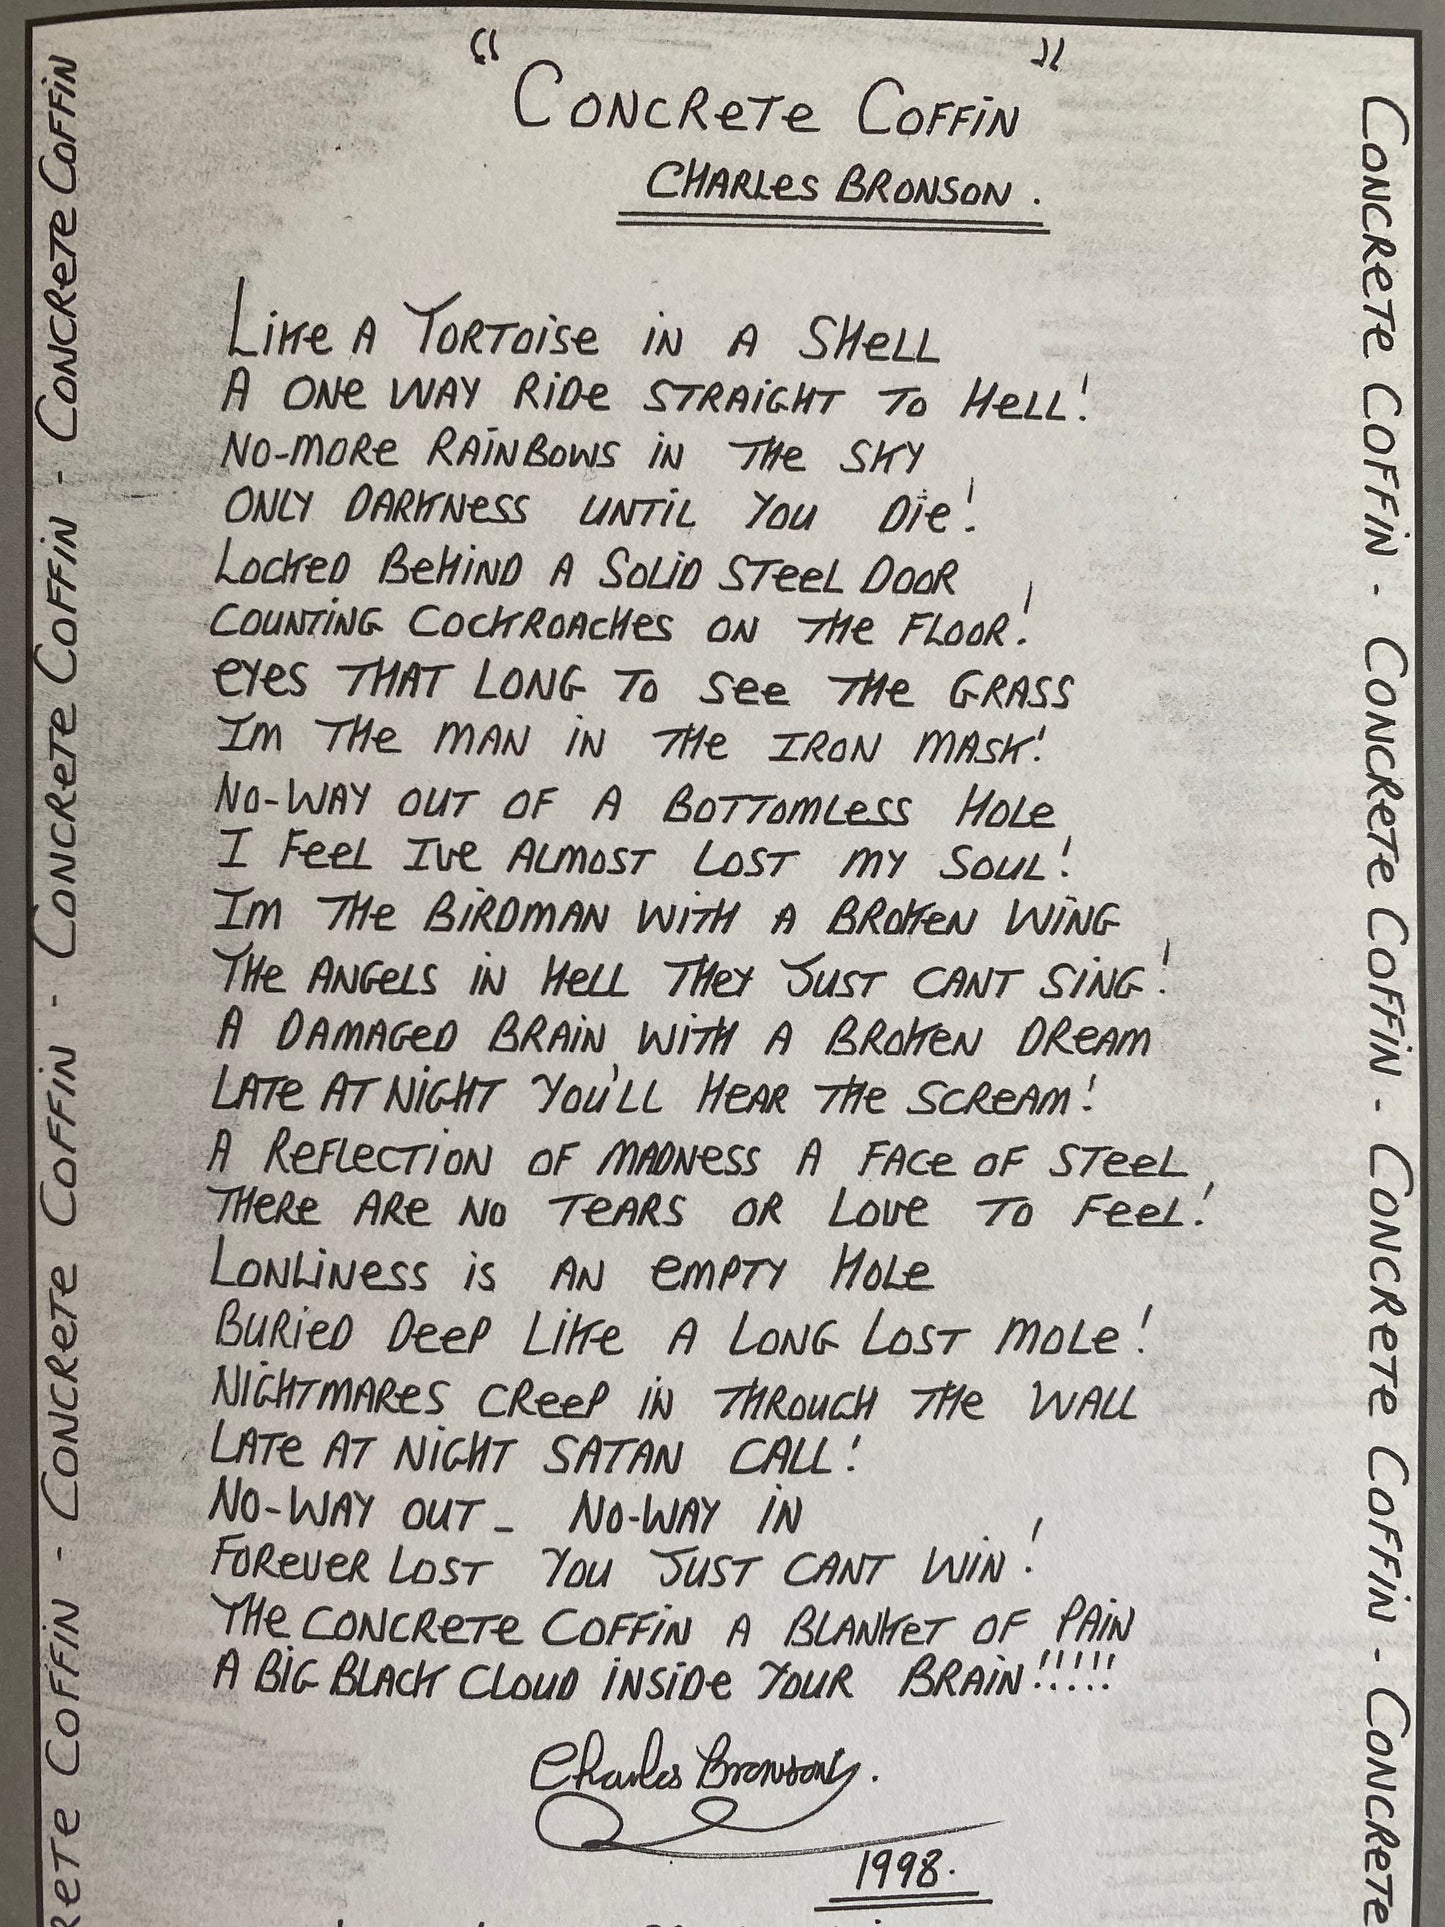 "Concrete Coffin"
Charles Bronson.
Like a Tortoise in a Shell
A one way ride straight to Hell!
No-more rainbows in the sky
Only darkness until you die!
Locked behind a solid steel door
Counting cockroaches on the floor!
Eyes that long to see the grass
Im the man in the iron mask!
No-way out of a bottomless hole
I feel Ive almost lost my soul!
Im the Birdman with a broken wing
The angels in hell they just cant sing!
A damaged brain with a broken dream
Late at night you'll hear the scream!
A reflection of madness a face of steel
There are no tears or love to feel!
Lonliness is an empty hole
Buried deep like a long lost mole!
Nightmares creep in through the wall
Late at night Satan call!
No-way out - No-way in
Forever lost you just cant win!
The Concrete Coffin a blanket of pain
A big black cloud inside your brain!!!!!
Charles Bronson.
1998.
rete Coffin - Concrete Coffin - Concrete Coffin - Concrete Coffin
Concrete Coffin - Concrete Coffin - Concrete Coffin - Concrete